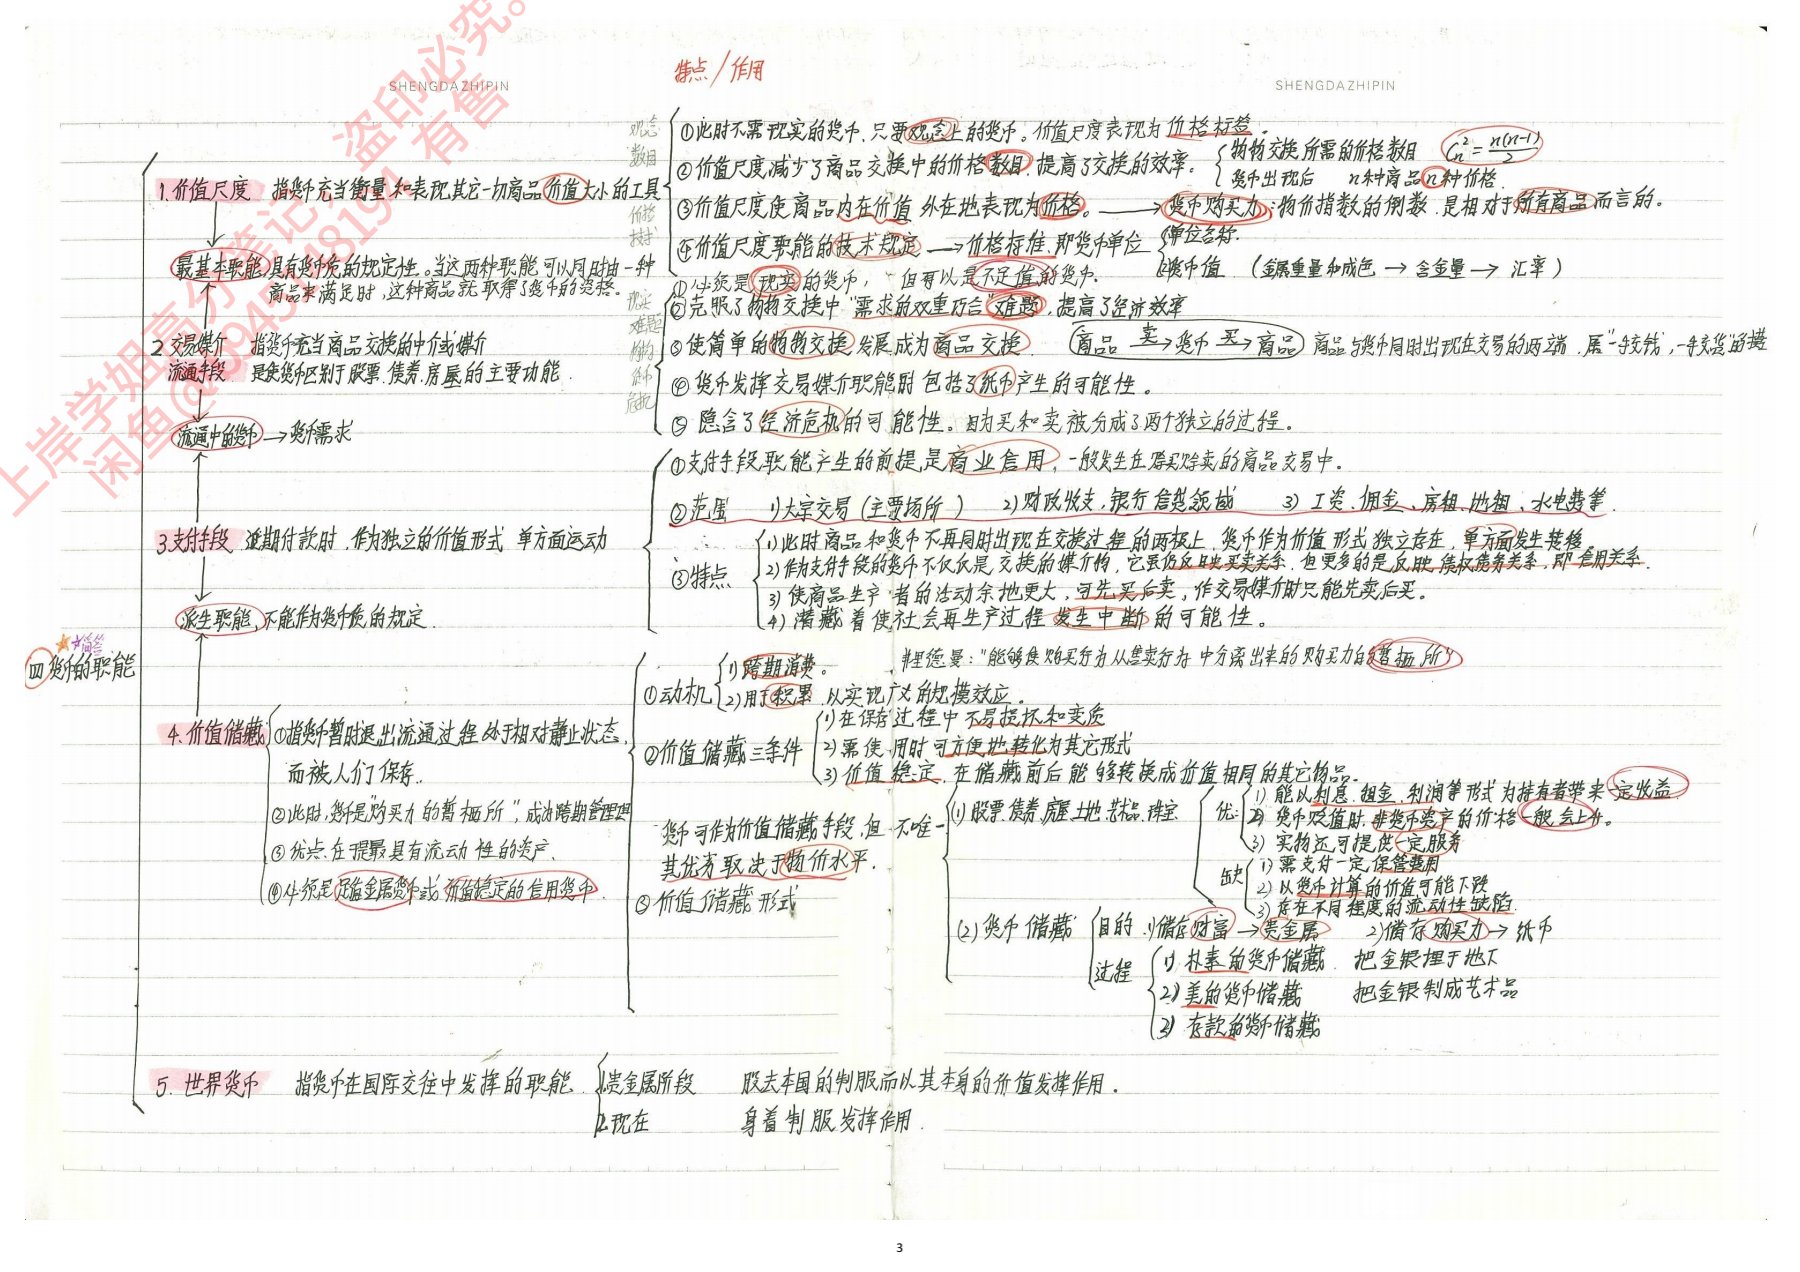 上岸学姐高分笔记 盗印必究。
闲鱼@
有售
SHENGDAZHIPIN
SHENGDAZHIPIN
特点/作用
四 货币的职能
简答
1. 价值尺度 指货币充当衡量和表现其它一切商品价值大小的工具
观念
数目
价格
技术
①此时不需现实的货币,只要观念上的货币。价值尺度表现为价格标签。
②价值尺度减少了商品交换中的价格数目,提高了交换的效率。
物物交换所需的价格数目 Cn²=n(n-1)/2
货币出现后 n种商品n种价格
③价值尺度使商品内在价值外在地表现为价格。→货币购买力:物价指数的倒数,是相对于所有商品而言的。
④价值尺度职能的技术规定→价格标准,即货币单位
单位名称
货币值 (金属重量和成色→含金量→汇率)
最基本职能,具有货币质的规定性。当这两种职能可以同时由一种
商品来满足时,这种商品就取得了货币的资格。
2. 交易媒介 指货币充当商品交换的中介或媒介
流通手段 是使货币区别于股票、债券、房屋的主要功能.
现实
难题
物物
纸币
危机
①必须是现实的货币, 但可以是不足值的货币.
②克服了物物交换中"需求的双重巧合"难题,提高了经济效率
③使简单的物物交换发展成为商品交换. 商品 卖→货币 买→商品 商品与货币同时出现在交易的两端,属"一手交钱,一手交货"的
④货币发挥交易媒介职能时包括了纸币产生的可能性。
⑤隐含了经济危机的可能性。因为买和卖被分成了两个独立的过程。
流通中的货币→货币需求
3. 支付手段 延期付款时,作为独立的价值形式 单方面运动
①支付手段职能产生的前提是商业信用,一般发生在赊买赊卖的商品交易中。
②范围 1)大宗交易(主要场所) 2)财政收支,银行信贷领域 3)工资、佣金、房租、地租、水电费等.
③特点
1)此时商品和货币不再同时出现在交换过程的两极上,货币作为价值形式独立存在,单方面发生转移.
2)作为支付手段的货币不仅仅是交换的媒介物,它虽仍反映买卖关系,但更多的是反映债权债务关系,即信用关系.
3)使商品生产者的活动余地更大,可先买后卖,作交易媒介时只能先卖后买。
4)潜藏着使社会再生产过程发生中断的可能性。
派生职能,不能作为货币质的规定.
4. 价值储藏
①指货币暂时退出流通过程处于相对静止状态,
而被人们保存.
②此时,货币是"购买力的暂栖所",成为跨期管理
③优点:在于提最具有流动性的资产.
④必须是足值金属货币或价值稳定的信用货币.
①动机
1)跨期消费。
2)用于积累,以实现广义的规模效应。
弗里德曼:"能够使购买行为从售卖行为中分离出来的购买力的暂栖所"
②价值储藏三条件
1)在保存过程中不易损坏和变质
2)需使用时可方便地转化为其它形式
3)价值稳定,在储藏前后能够转换成价值相同的其它物品.
货币可作为价值储藏手段,但不唯一
其优劣取决于物价水平.
③价值储藏形式
(1)股票.债券.房屋.土地.艺术品.珠宝
优:
1)能以利息.租金.利润等形式为持有者带来一定收益.
2)货币贬值时,非货币资产的价格一般会上升。
3)实物还可提供一定服务
缺
1)需支付一定保管费用
2)以货币计算的价值可能下跌
3)存在不同程度的流动性缺陷.
(2)货币储藏
目的 1)储存财富→贵金属 2)储存购买力→纸币
过程
1)朴素的货币储藏 把金银埋于地下
2)美的货币储藏 把金银制成艺术品
3)存款的货币储藏
5. 世界货币 指货币在国际交往中发挥的职能.
1.贵金属阶段 脱去本国的制服而以其本身的价值发挥作用。
2.现在 身着制服发挥作用.
3